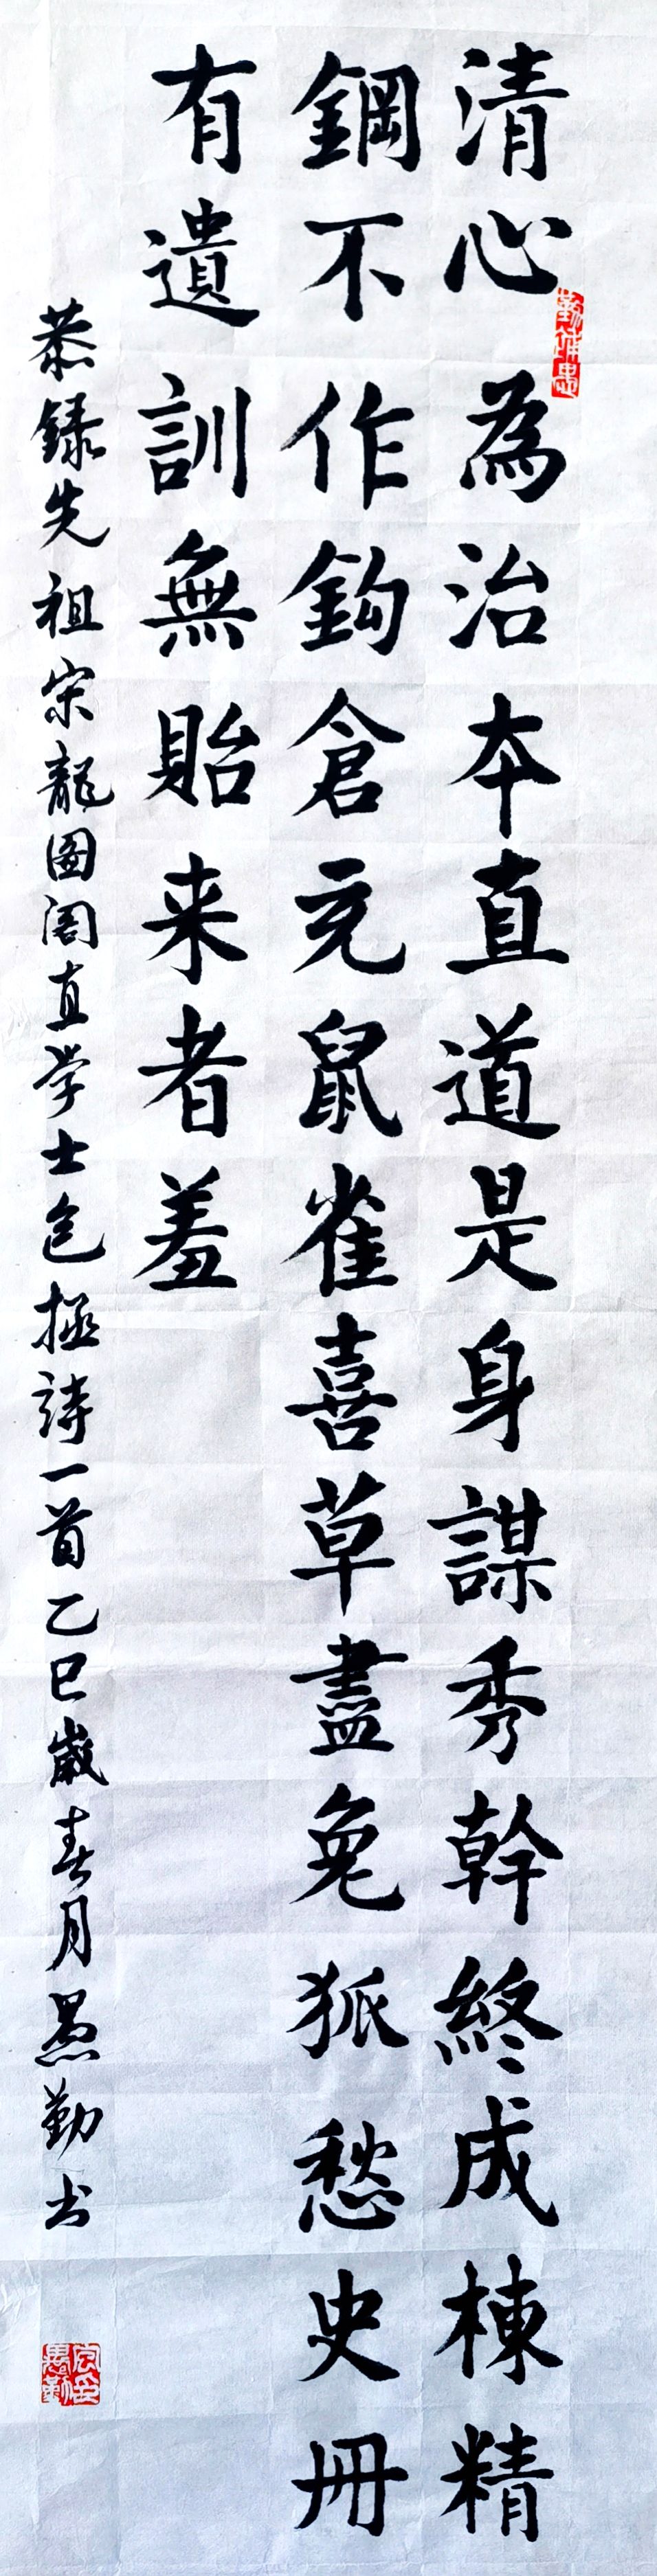 清心為治本直道是身謀秀幹終成棟精
鋼不作鈎倉充鼠雀喜草盡兔狐愁史冊
有遺訓無貽来者羞
恭録先祖宋龍图阁直学士包拯詩一首乙巳歲春月愚勤书
勤補愚
包印愚勤